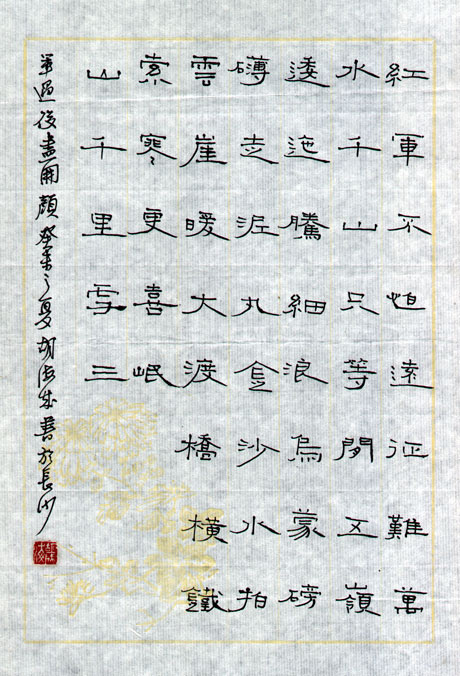 紅軍不怕遠征難萬
水千山只等閒五嶺
逶迤騰細浪烏蒙磅
礴走泥丸金沙水拍
雲崖暖大渡橋橫鐵
索寒更喜岷
山千里雪三
軍過後盡開顏 癸未之夏 胡書於長沙